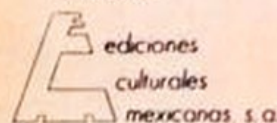 ediciones
culturales
mexicanas s.a